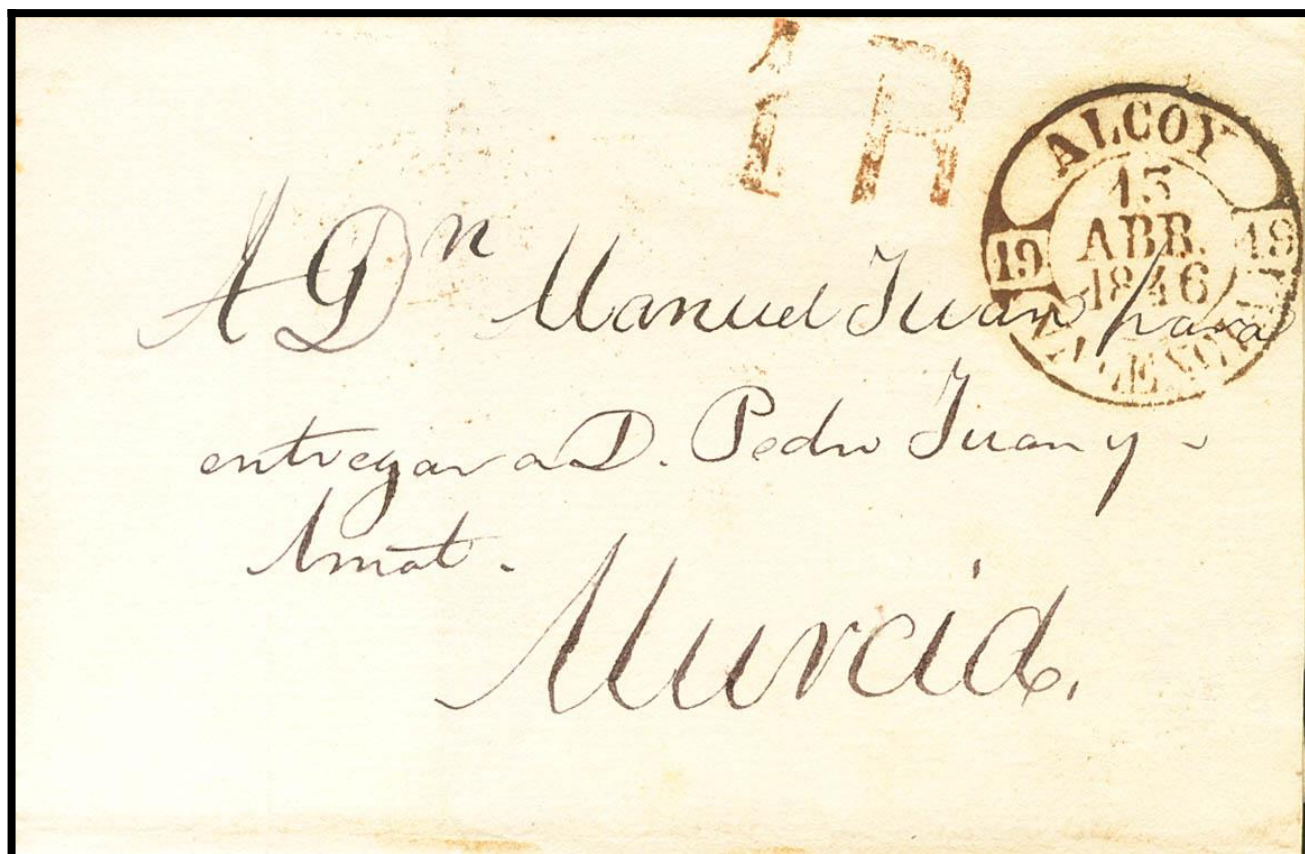 1R
ALCOY
19 13 19
ABR.
1846
VALENCIA
A Dn Manuel Juan para
entregar a D. Pedro Juan y -
Amat.
Murcia.